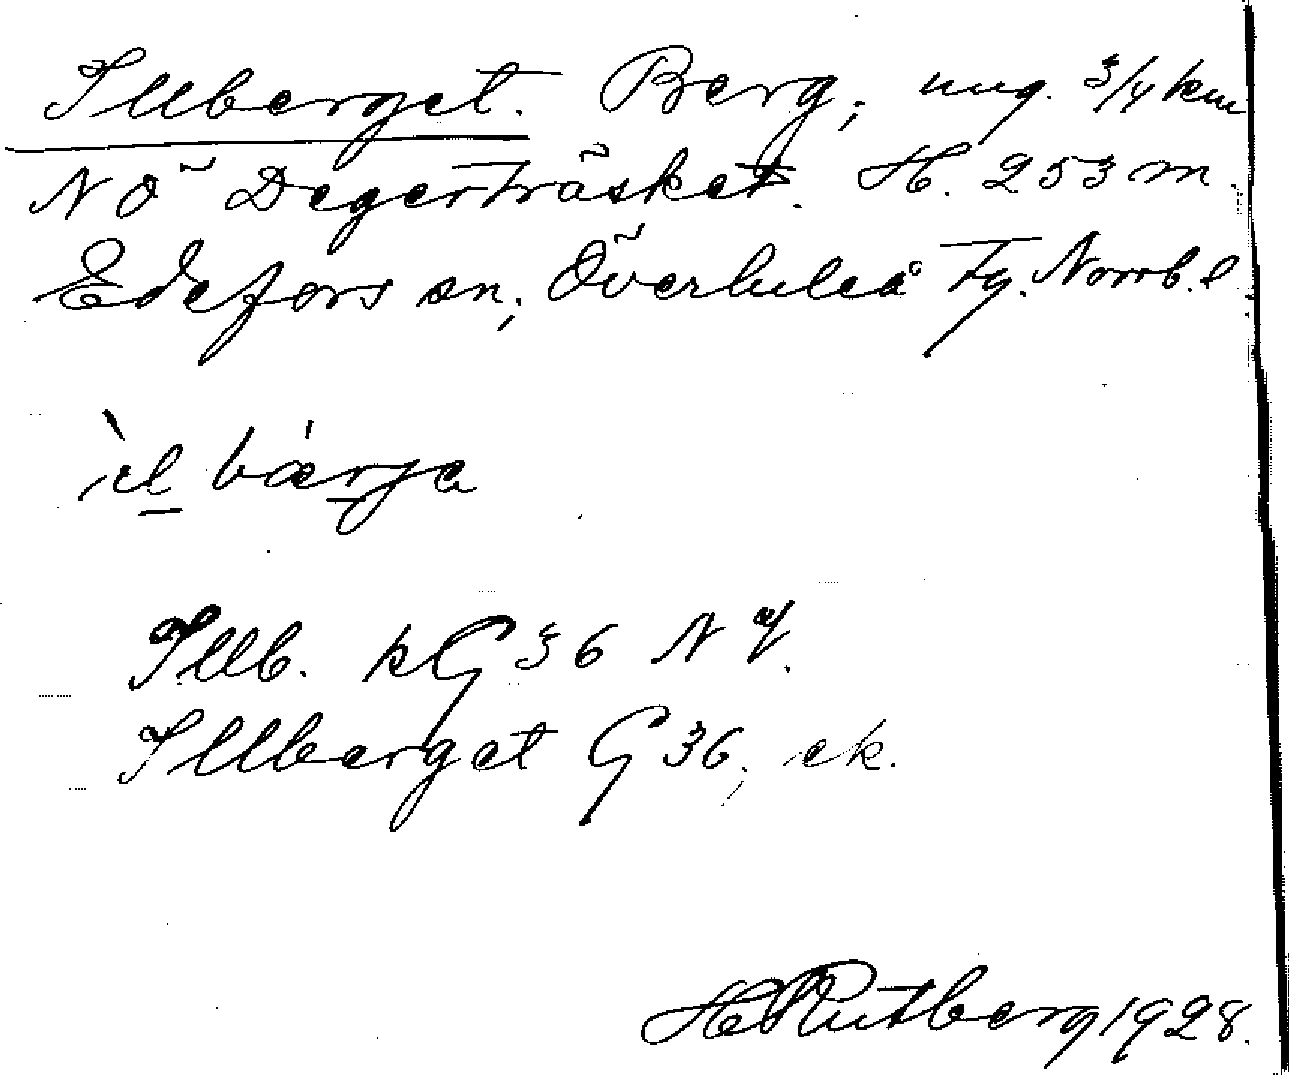 Illberget. Berg, ung. 3/4 km
NÖ Degerträsket. H. 253 m.
Edefors sn, Överluleå Tg. Norrb. l
ìl bǽrja
Illb. kG 36 N
Illberget G 36, ek.
H Rutberg 1928.